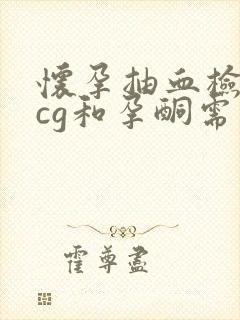 懷孕抽血檢
cg和孕酮需
霍尊盡